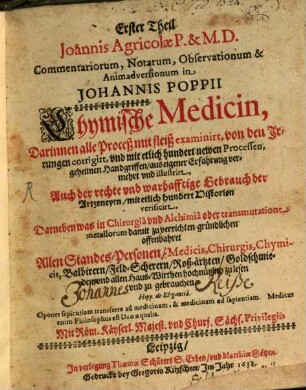 Erster Theil
Joannis Agricolæ P. & M. D.
Commentariorum, Notarum, Observationum &
Animadversionum in
JOHANNIS POPPII
Chymische Medicin,
Darinnen alle Proceß mit fleiß examinirt, von den Ir-
rungen corrigirt, vnd mit etlich hundert newen Processen,
geheimen Handgriffen / aus eigener Erfahrung ver-
mehret vnd illustrirt,
Auch der rechte vnd warhafftige Gebrauch der
Artzeneyen / mit etlich hundert Historien
verificirt.
Darneben was in Chirurgiâ vnd Alchimiâ oder transmutatione
metallorum damit zu verrichten gründlicher
offenbahret
Allen Standes / Personen / Medicis, Chirurgis, Chymi-
cis, Balbirern / Feld-Scherern / Roß-ärtzten / Goldschmie-
den vnd allen Hauß-Würthen hochnützlich zu lesen
vnd zu gebrauchen
Johannes
Hipp. de Elegantiâ.
Oportet sapientiam transferre ad medicinam, & medicinam ad sapientiam. Medicus
enim Philosophus est Deo æqualis.
Mit Röm. Käyserl. Majest. vnd Churf. Sächs. Privilegiis
Leipzig /
In verlegung Thomæ Schürers S. Erben / vnd Matthiæ Götzen.
Gedruckt bey Gregorio Ritzschen / Im Jahr 1638.